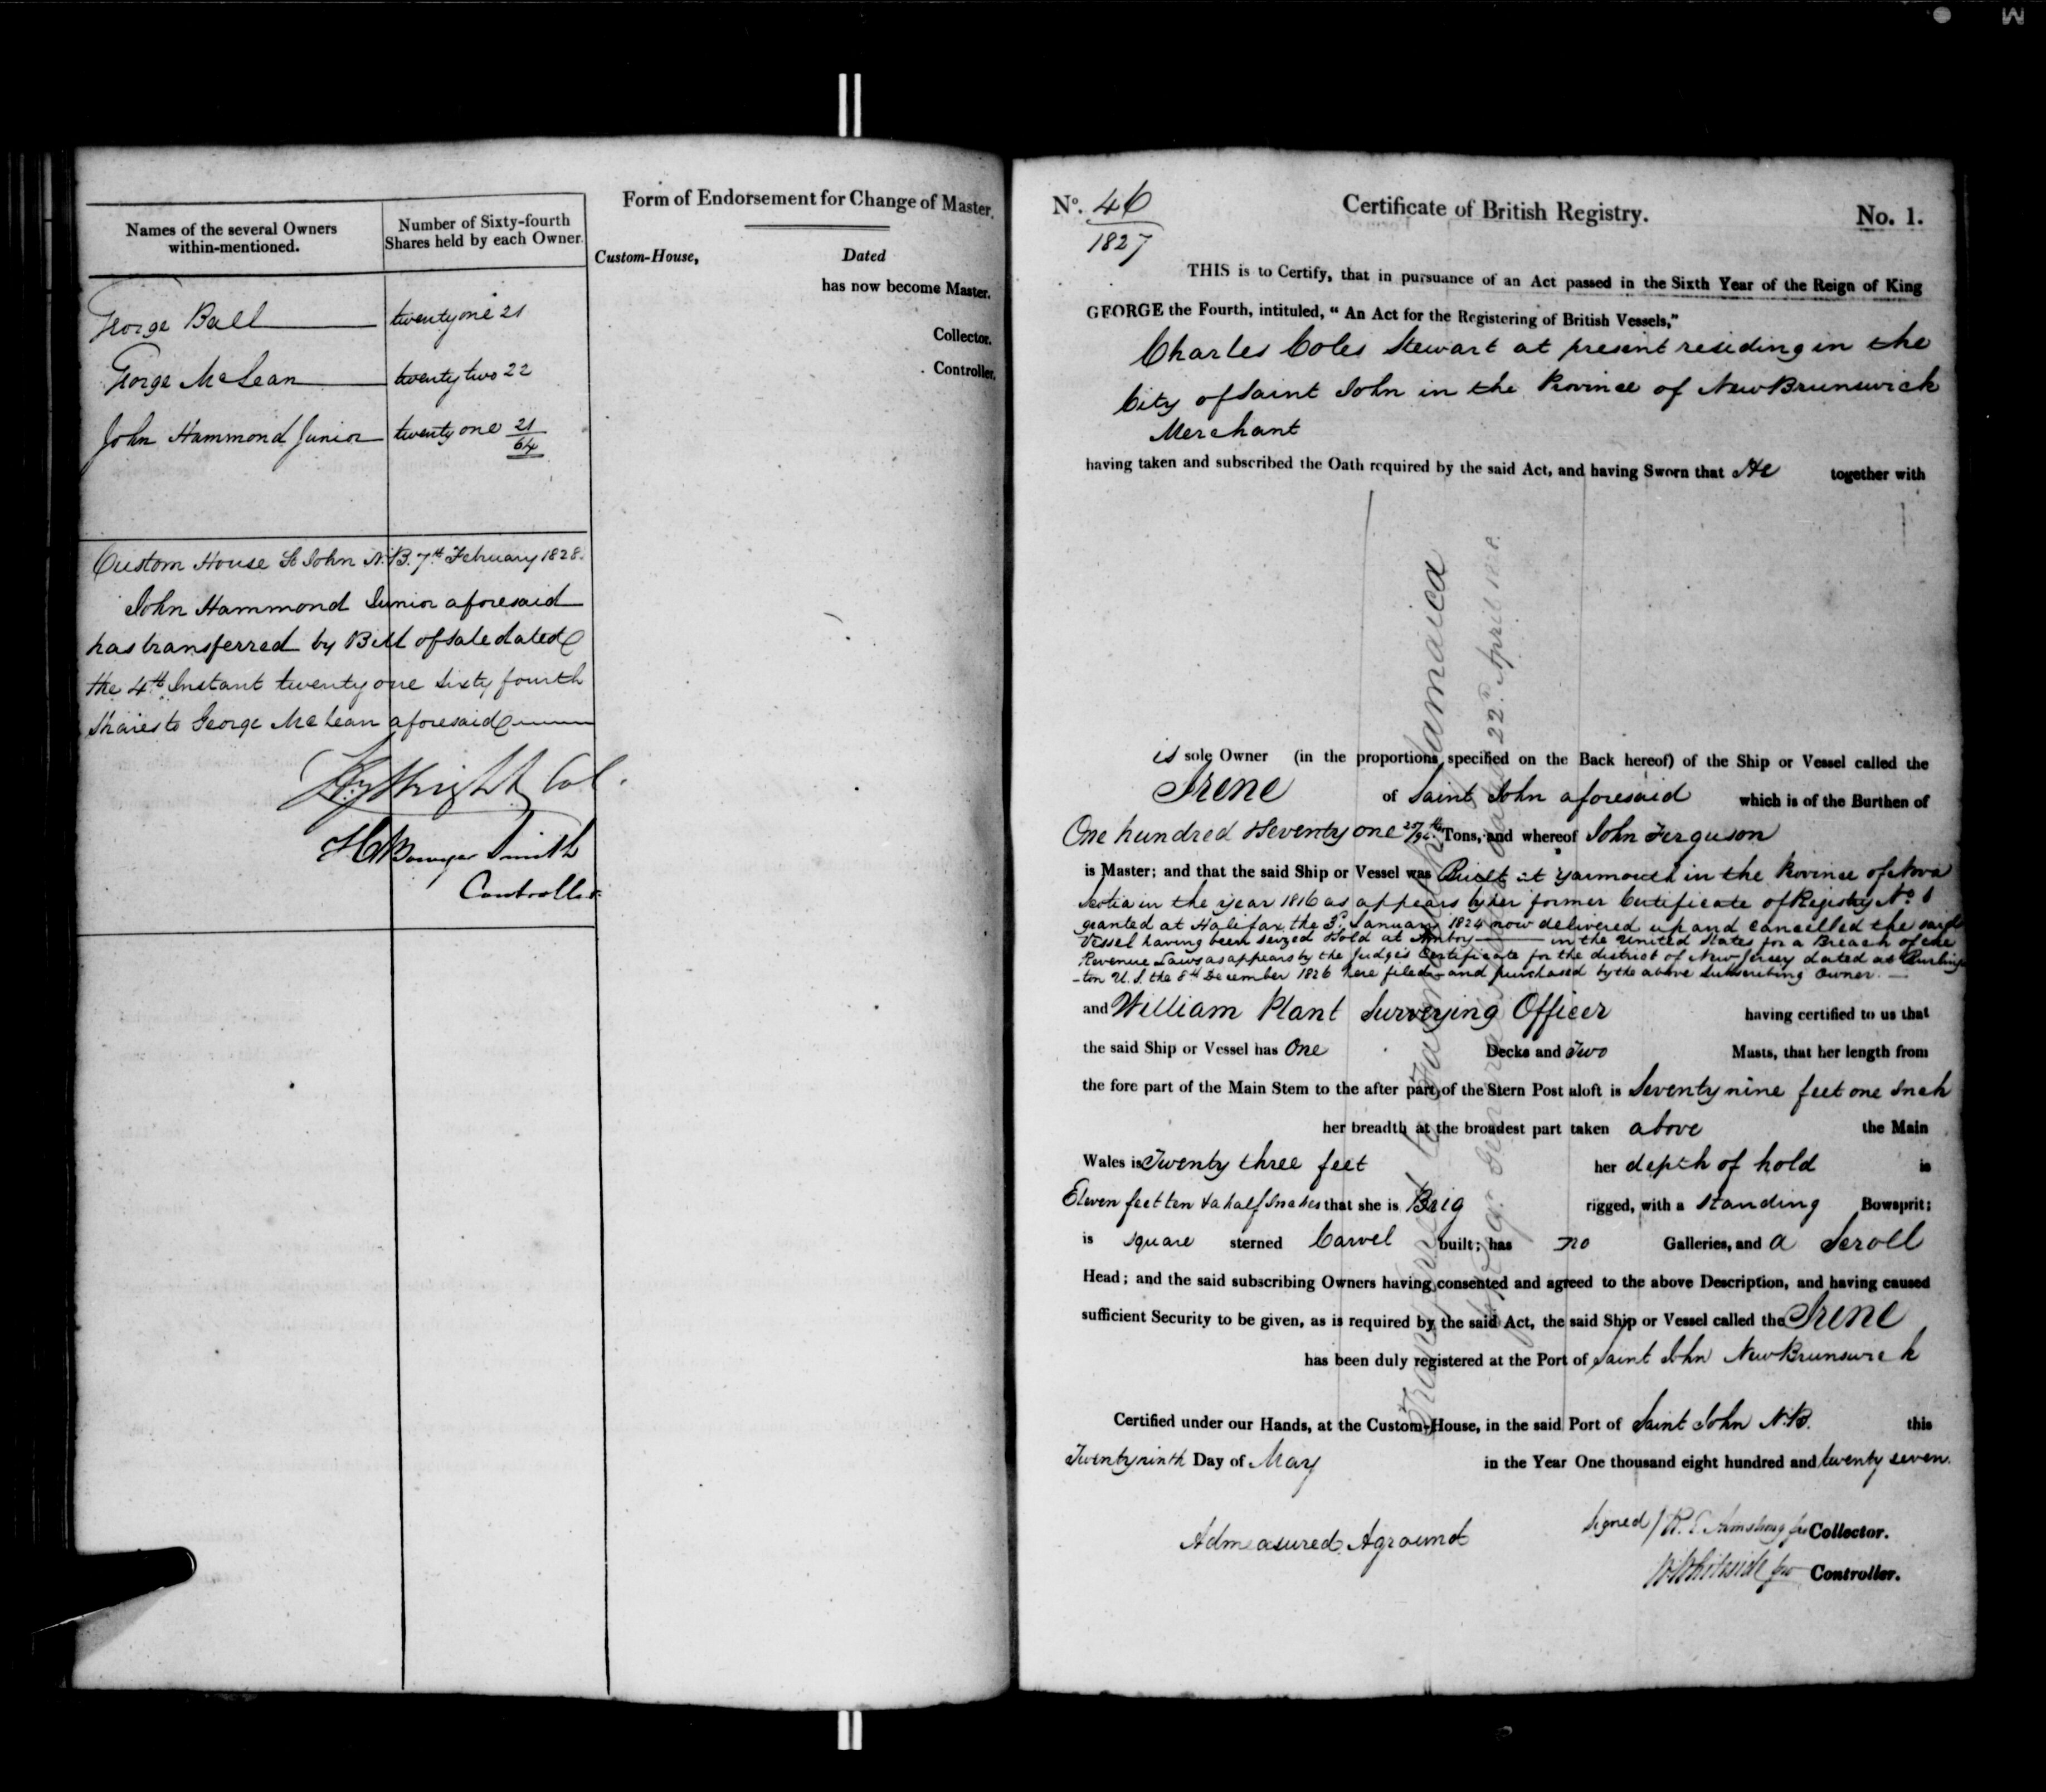 Names of the several Owners
within-mentioned.
Number of Sixty-fourth
Shares held by each Owner.
George Ball twenty one 21
George McLean twenty two 22
John Hammond Junior twenty one 21/64
Custom House St John N.B. 7th February 1828.
John Hammond Junior aforesaid
has transferred by Bill of Sale dated
the 4th Instant twenty one Sixty fourth
Shares to George McLean aforesaid
Hy Wright Col.
H Bowyer Smith
Controller
Form of Endorsement for Change of Master.
Custom-House, Dated
has now become Master.
Collector.
Controller.
No. 46
1827
Certificate of British Registry.
No. 1.
THIS is to Certify, that in pursuance of an Act passed in the Sixth Year of the Reign of King
GEORGE the Fourth, intituled, “ An Act for the Registering of British Vessels,”
Charles Coles Stewart at present residing in the
City of Saint John in the Province of New Brunswick
Merchant
having taken and subscribed the Oath required by the said Act, and having Sworn that He together with
is sole Owner (in the proportions specified on the Back hereof) of the Ship or Vessel called the
Irene of Saint John aforesaid which is of the Burthen of
One hundred & Seventy one Tons, and whereof John Ferguson
is Master; and that the said Ship or Vessel was Built at Yarmouth in the Province of Nova
Scotia in the year 1816 as appears by her former Certificate of Registry No. 1
granted at Halifax the 3d. January 1824 now delivered up and cancelled the said
Vessel having been seized & Sold at Amboy in the United States for a Breach of the
Revenue Laws as appears by the Judges Certificate for the district of New Jersey dated at Burling
-ton U.S. the 8th December 1826 here filed and purchased by the above Subscribing Owner.
and William Plant Surveying Officer having certified to us that
the said Ship or Vessel has One Decks and Two Masts, that her length from
the fore part of the Main Stem to the after part of the Stern Post aloft is Seventy nine feet one Inch
her breadth at the broadest part taken above the Main
Wales is Twenty three feet her depth of hold is
Eleven feet ten & a half Inches that she is Brig rigged, with a standing Bowsprit;
is square sterned Carvel built; has no Galleries, and a Scroll
Head; and the said subscribing Owners having consented and agreed to the above Description, and having caused
sufficient Security to be given, as is required by the said Act, the said Ship or Vessel called the Irene
has been duly registered at the Port of Saint John New Brunswick
Certified under our Hands, at the Custom-House, in the said Port of Saint John N.B. this
Twenty ninth Day of May in the Year One thousand eight hundred and twenty seven.
Admeasured Aground
Signed / R. Armstrong for Collector.
W Whiteside for Controller.
Jamaica
22d. April